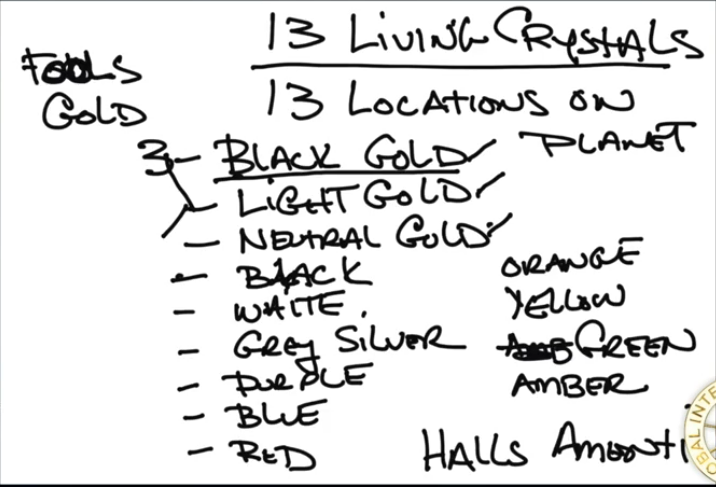 13 LiViNG CRYSTALS
FOOLS
GOLD
13 LOCATIONS ON
PLANET
3 - BLACK GOLD
- LiGHT GOLD
- NEUTRAL GOLD
- BLACK
- WHITE.
- GREY SiLVER
- PURPLE
- BLUE
- RED
ORANGE
YELLOW
GREEN
AMBER
HALLS AMENTi